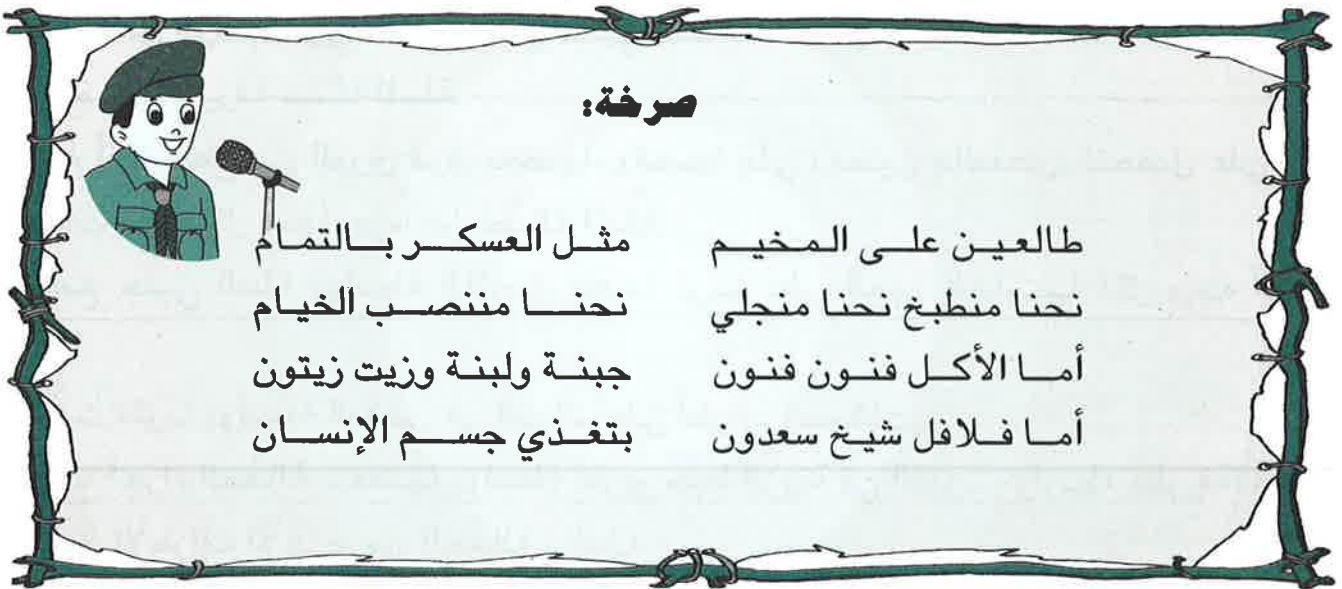 صرخة:
طالعين على المخيم مثل العسكر بالتمام
نحنا منطبخ نحنا منجلي نحنا مننصب الخيام
أما الأكل فنون فنون جبنة ولبنة وزيت زيتون
أما فلافل شيخ سعدون بتغذي جسم الإنسان